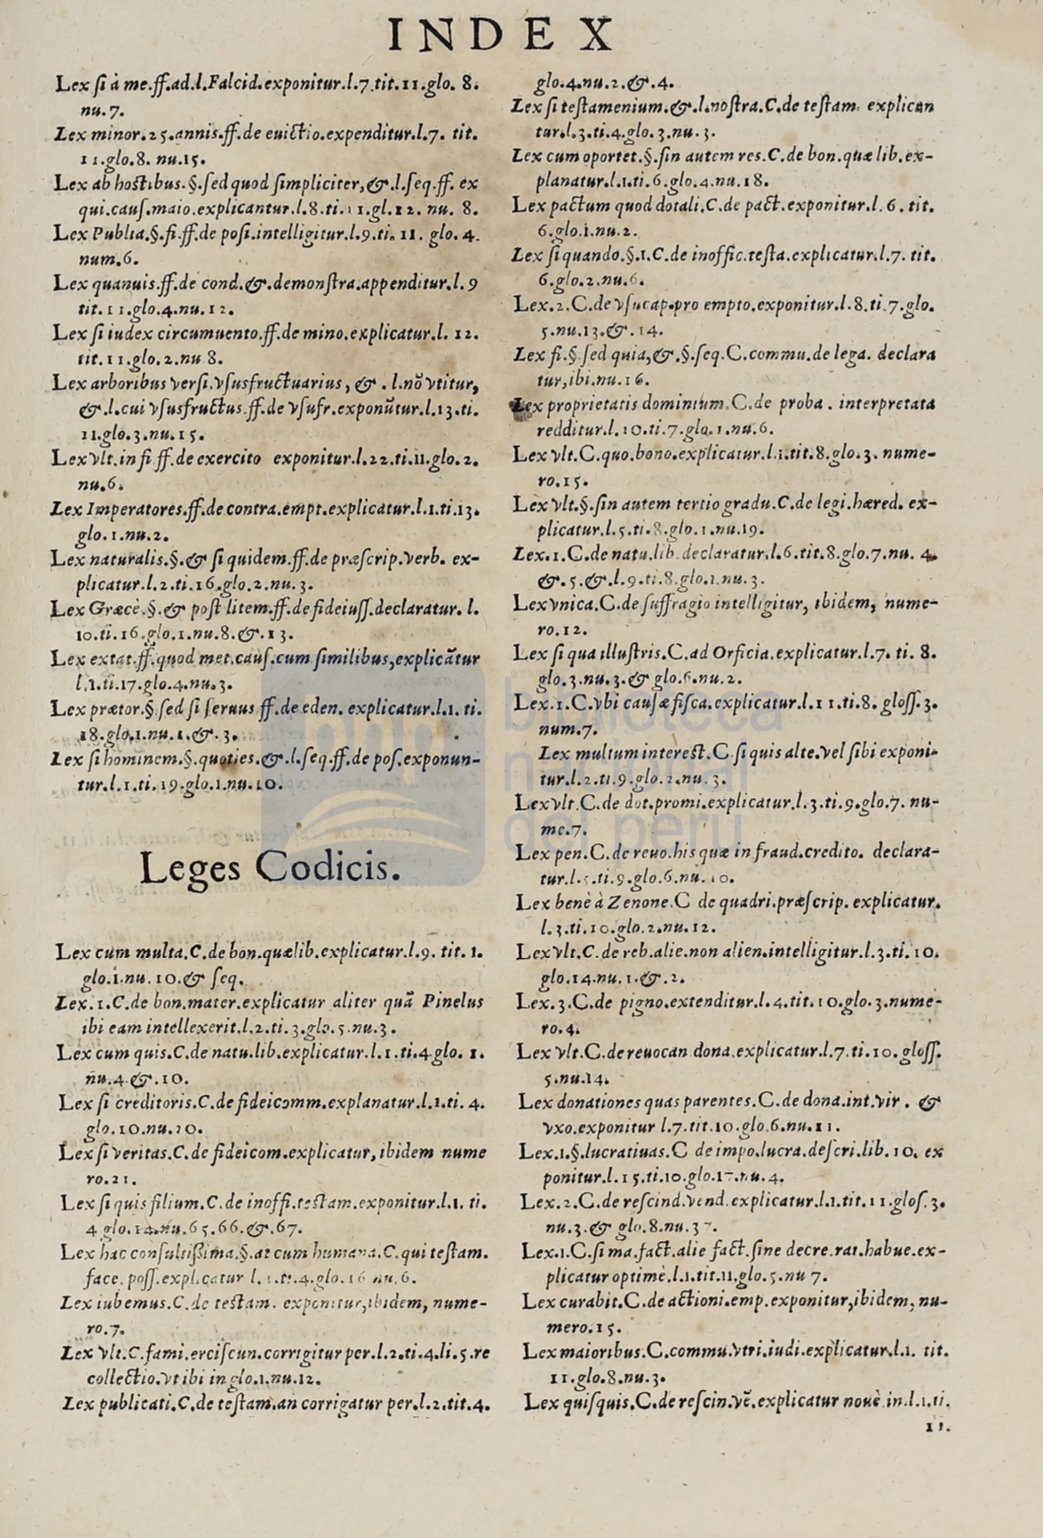 INDEX
Lex ſi à me.ff.ad.l.Falcid.exponitur.l.7.tit.11.glo. 8.
nu.7.
Lex minor.25.annis.ff.de euictio.expenditur.l.7. tit.
11.glo.8. nu.15.
Lex ab hostibus.§.ſed quod ſimpliciter,&.l.ſeq.ff. ex
qui.cauſ.maio.explicantur.l.8.ti.11.gl.12. nu. 8.
Lex Publia.§.fi.ff.de poſi.intelligitur.l.9.ti. 11. glo. 4.
num.6.
Lex quanuis.ff.de cond.&.demonſtra.appenditur.l. 9
tit.11.glo.4.nu.12.
Lex ſi iudex circumuento.ff.de mino.explicatur.l. 12.
tit.11.glo.2.nu 8.
Lex arboribus verſi.vſusfructuarius, &. l.nõ vtitur,
&.l.cui vſusfructus.ff.de vſufr.exponũtur.l.13.ti.
11.glo.3.nu.15.
Lex vlt.in fi ff.de exercito exponitur.l.22.ti.11.glo.2.
nu.6.
Lex Imperatores.ff.de contra.empt.explicatur.l.1.ti.13.
glo.1.nu.2.
Lex naturalis.§.& ſi quidem.ff.de præſcrip.verb. ex-
plicatur.l.2.ti.16.glo.2.nu.3.
Lex Græcè.§.& poſt litem.ff.de fideiuſſ.declaratur. l.
10.ti.16.glo.1.nu.8.&.13.
Lex extat.ff.quod met.cauſ.cum ſimilibus,explicãtur
l.1.ti.17.glo.4.nu.3.
Lex prætor.§.ſed ſi ſeruus ff.de eden. explicatur.l.1. ti.
18.glo.1.nu.1.&.3.
Lex ſi hominem.§.quoties.&.l.ſeq.ff.de poſ.exponun-
tur.l.1.ti.19.glo.1.nu.10.
Leges Codicis.
Lex cum multa.C.de bon.quælib.explicatur.l.9. tit. 1.
glo.1.nu. 10.& ſeq.
Lex.1.C.de bon.mater.explicatur aliter quã Pinelus
ibi eam intellexerit.l.2.ti.3.glo.5.nu.3.
Lex cum quis.C.de natu.lib.explicatur.l.1.ti.4.glo. 1.
nu.4.&.10.
Lex ſi creditoris.C.de fideicomm.explanatur.l.1.ti. 4.
glo.10.nu.20.
Lex ſi veritas.C.de fideicom.explicatur,ibidem nume
ro.21.
Lex ſi quis filium.C.de inoffi.teſtam.exponitur.l.1. ti.
4 glo.14.nu.65.66.&.67.
Lex hac conſultiſsima.§.at cum humana.C.qui teſtam.
face.poſſ.explicatur l. 1.ti.4.glo.16 nu.6.
Lex iubemus.C.de teſtam. exponitur,ibidem, nume-
ro.7.
Lex vlt.C.fami.erciſcun.corrigitur per.l.2.ti.4.li.5.re
collectio.vt ibi in glo.1.nu.12.
Lex publicati.C.de teſtam.an corrigatur per.l.2.tit.4.
glo.4.nu.2.&.4.
Lex ſi teſtamenium.&.l.noſtra.C.de teſtam. explican
tur.l.3.ti.4.glo.3.nu.3.
Lex cum oportet.§.ſin autem res.C.de bon.quæ lib.ex-
planatur.l.1.ti.6.glo.4.nu.18.
Lex pactum quod dotali.C.de pact.exponitur.l.6. tit.
6.glo.1.nu.2.
Lex ſi quando.§.1.C.de inoffic.teſta.explicatur.l.7. tit.
6.glo.2.nu.6.
Lex.2.C.de vſucap.pro empto.exponitur.l.8.ti.7.glo.
5.nu.13.&.14.
Lex fi.§.ſed quia,&.§.ſeq.C.commu.de lega. declara
tur,ibi.nu.16.
Lex proprietatis dominium.C.de proba. interpretata
redditur.l.10.ti.7.glo.1.nu.6.
Lex vlt.C.quo.bono.explicatur.l.1.tit.8.glo.3. nume-
ro.15.
Lex vlt.§.ſin autem tertio gradu.C.de legi.hæred. ex-
plicatur.l.5.ti.8.glo.1.nu.19.
Lex.1.C.de natu.lib.declaratur.l.6.tit.8.glo.7.nu. 4.
&.5.&.l.9.ti.8.glo.1.nu.3.
Lex vnica.C.de ſuffragio intelligitur, ibidem, nume-
ro.12.
Lex ſi qua illuſtris.C.ad Orficia.explicatur.l.7. ti. 8.
glo.3.nu.3.& glo.6.nu.2.
Lex.1.C.vbi cauſæ fiſca.explicatur.l.11.ti.8. gloſſ.3.
num.7.
Lex multum intereſt.C.ſi quis alte.vel ſibi exponi-
tur.l.2.ti.9.glo.2.nu.3.
Lex vlt.C.de dot.promi.explicatur.l.3.ti.9.glo.7. nu-
me.7.
Lex pen.C.de reuo.his quæ in fraud.credito. declara-
tur.l.5.ti.9.glo.6.nu.10.
Lex benè à Zenone.C de quadri.præſcrip.explicatur.
l.3.ti.10.glo.2.nu.12.
Lex vlt.C.de reb.alie.non alien.intelligitur.l.3.ti.10.
glo.14.nu.1.&.2.
Lex.3.C.de pigno.extenditur.l.4.tit.10.glo.3.nume-
ro.4.
Lex vlt.C.de reuocan dona.explicatur.l.7.ti.10.gloſſ.
5.nu.14.
Lex donationes quas parentes.C.de dona.int.vir. &
vxo.exponitur l.7.tit.10.glo.6.nu.11.
Lex.1.§.lucratiuas.C de impo.lucra.deſcri.lib.10. ex
ponitur.l.15.ti.10.glo.17.nu.4.
Lex.2.C.de reſcind.vend.explicatur.l.1.tit.11.gloſ.3.
nu.3.& glo.8.nu.37.
Lex.1.C.ſi ma.fact.alie fact.ſine decre.rat.habue.ex-
plicatur optimè.l.1.tit.11.glo.5.nu 7.
Lex curabit.C.de actioni.emp.exponitur,ibidem, nu-
mero.15.
Lex maioribus.C.commu.vtri.iudi.explicatur.l.1. tit.
11.glo.8.nu.3.
Lex quiſquis.C.de reſcin.vẽ.explicatur nouè in.l.1.ti.
11.
biblioteca
nacional
del perú